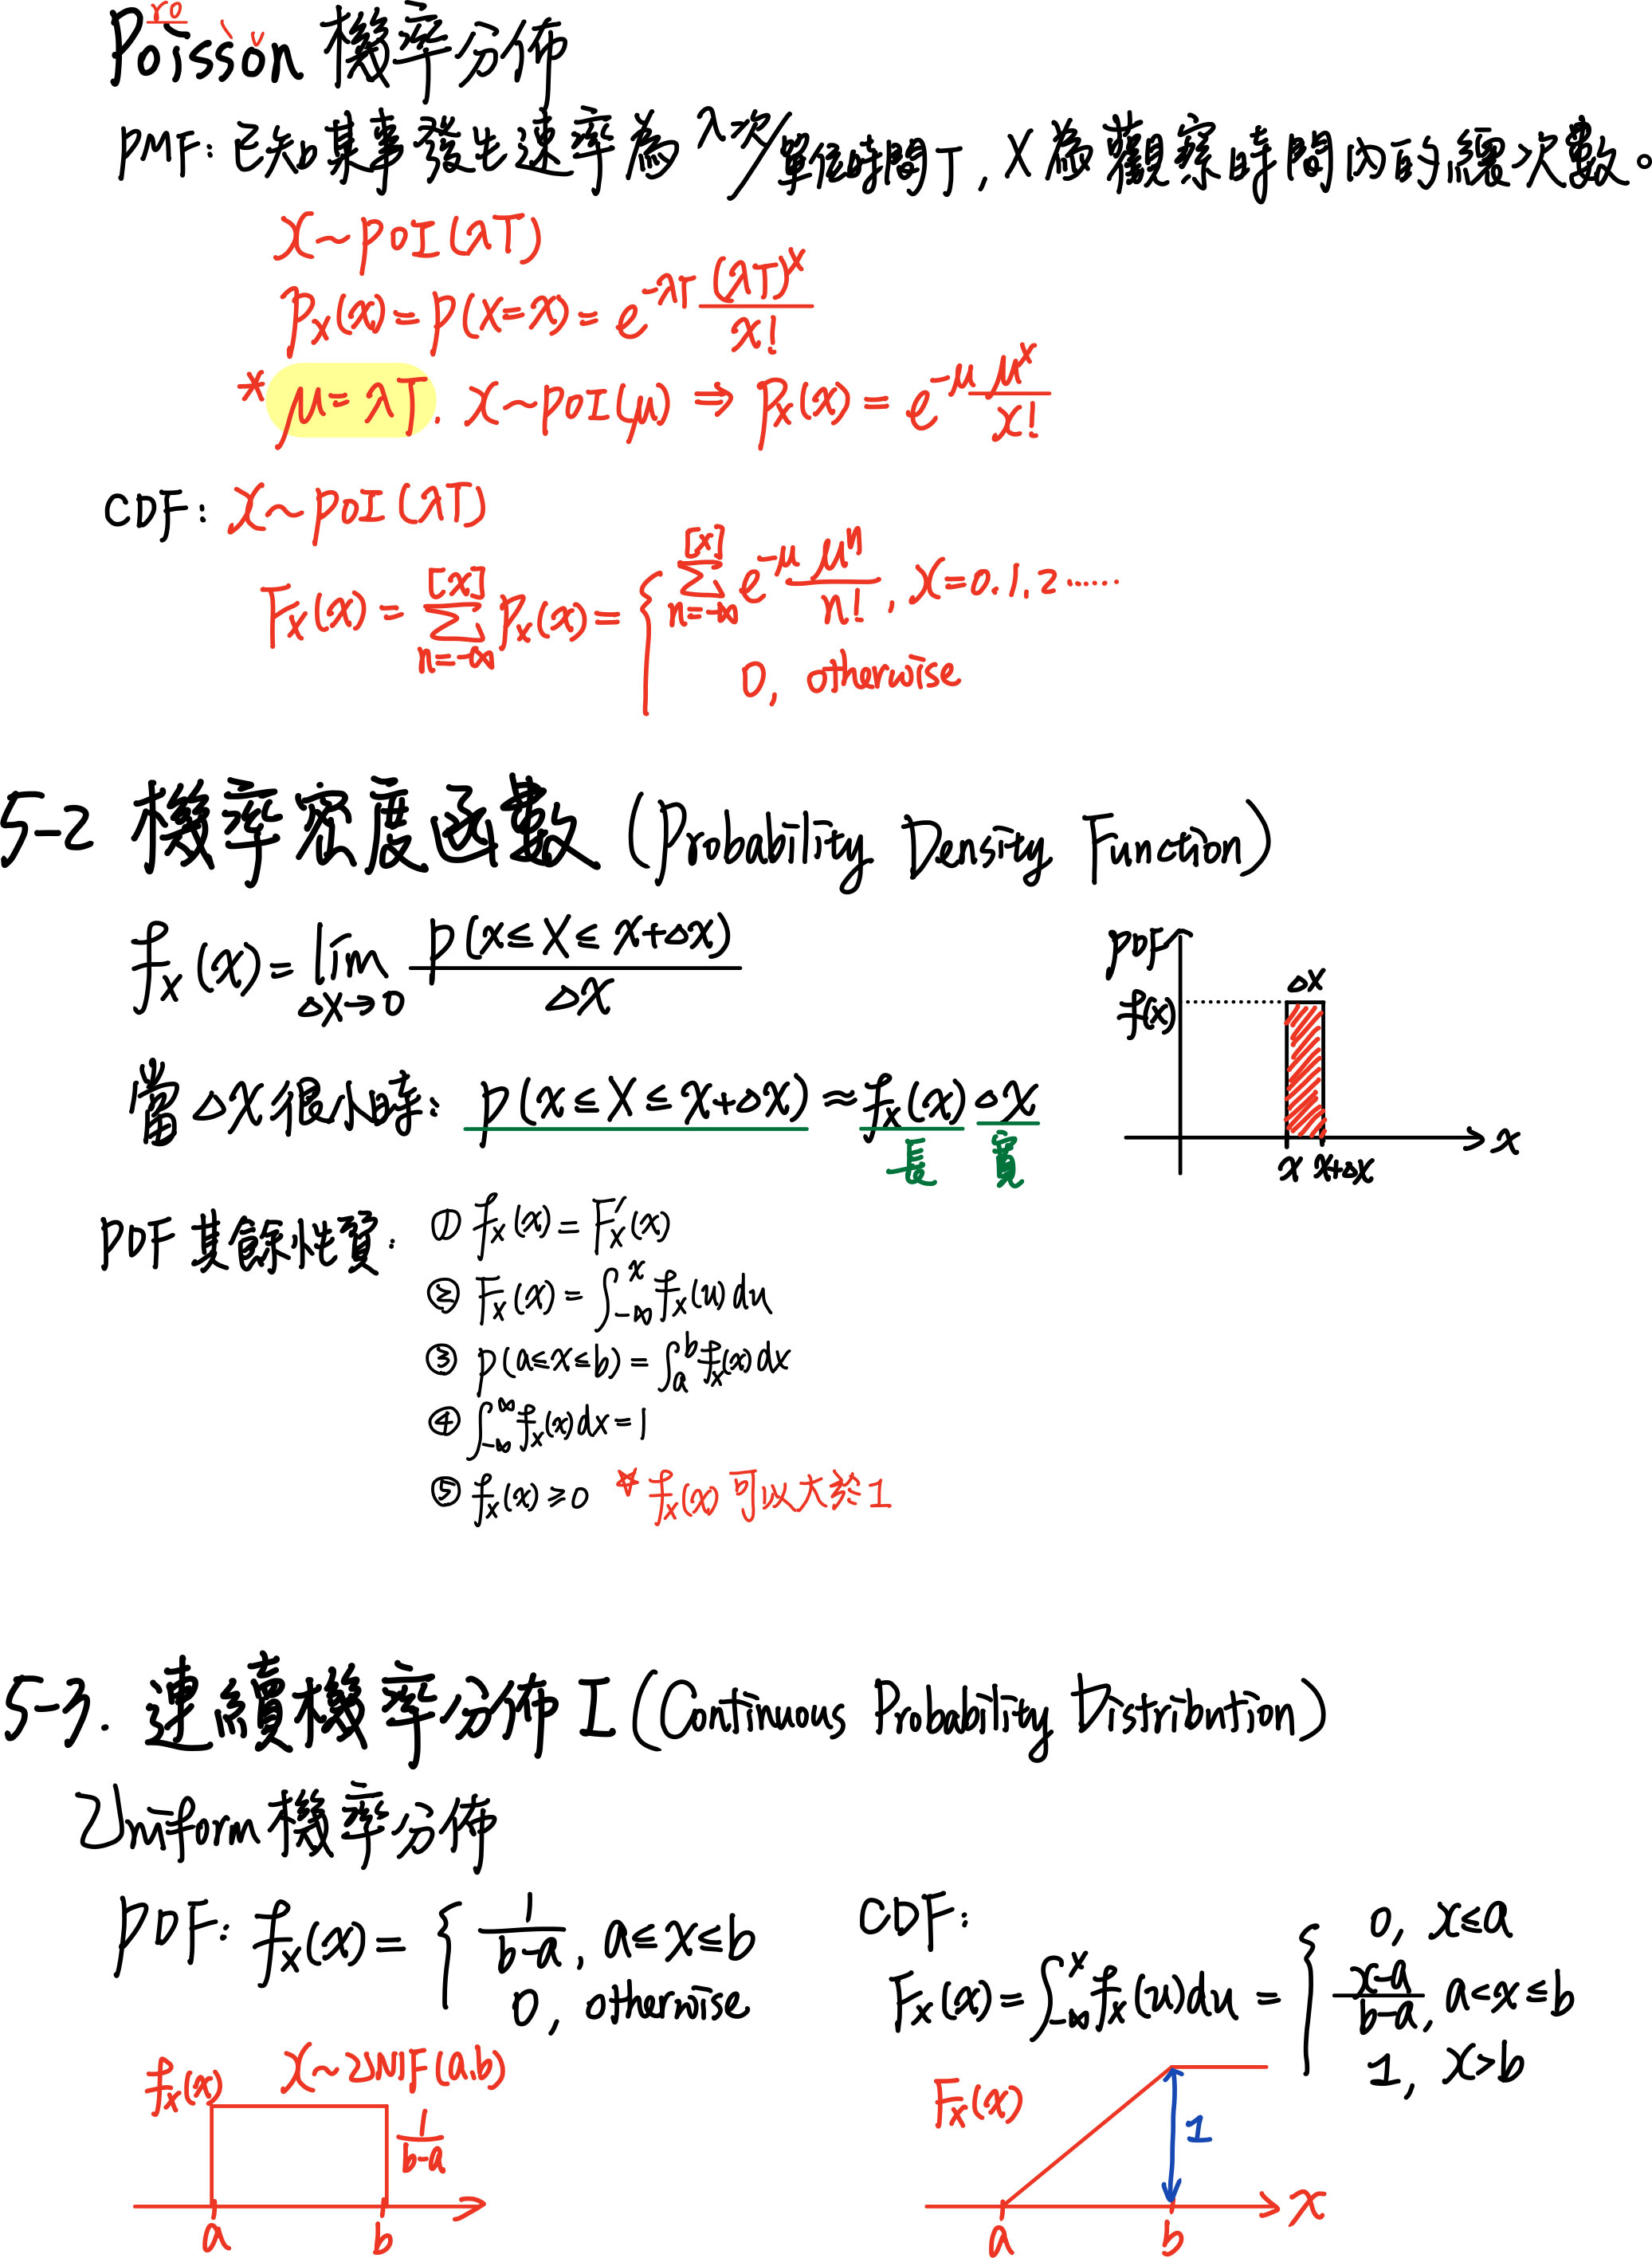 ro
Poisson 機率分佈
PMF: 已知某事發生速率為 λ次/單位時間T, X為觀察時間內的總次數。
X~POI(λT)
P_X(x)=P(X=x)=e^{-λT} (λT)^x/x!
* μ=λT. X~POI(μ) ⇒ P_X(x)=e^{-μ} μ^x/x!
CDF: X~POI(λT)
F_X(x)=∑_{n=-∞}^{[x]} P_X(x)={ ∑_{n=-∞}^{[x]} e^{-μ} μ^n/n!, x=0.1.2......
0, otherwise
5-2 機率密度函數 (Probability Density Function)
f_X(x)=lim_{△x→0} P(x≤X≤x+△x)/△x
PDF
f(x)
△x
x
x x+△x
當△x很小時: P(x≤X≤x+△x)≈f_X(x)△x
長 寬
PDF其餘性質: ① f_X(x)=F_X'(x)
② F_X(x)=∫_{-∞}^{x} f_X(u)du
③ P(a≤x≤b)=∫_a^b f_X(x)dx
④ ∫_{-∞}^{∞} f_X(x)dx=1
⑤ f_X(x)≥0 ☆ f_X(x) 可以大於1
5-3. 連續機率分佈 I (Continuous Probability Distribution)
Uniform機率分佈
PDF: f_X(x)={ 1/(b-a), a≤x≤b
0, otherwise
CDF:
F_X(x)=∫_{-∞}^{x} f_X(u)du={ 0, x≤a
(x-a)/(b-a), a<x≤b
1, x>b
f_X(x) X~UNIF(a,b)
1/(b-a)
a b
F_X(x)
1
x
a b